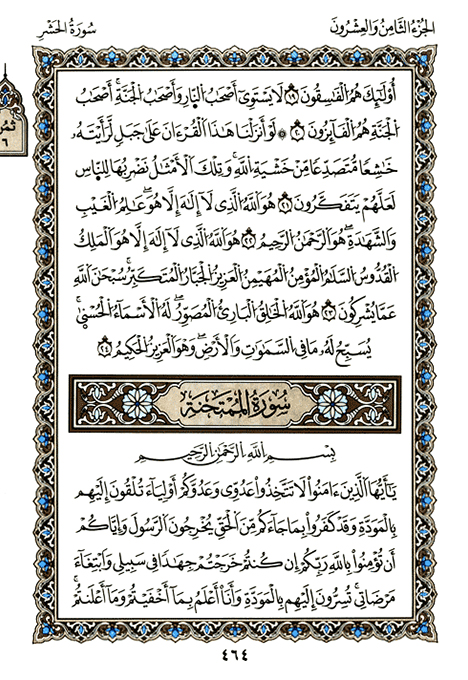 الجُزْءُ الثَّامِنُ وَالعِشْرُونَ
سُورَةُ الحَشْرِ
أُوْلَٰٓئِكَ هُمُ ٱلْفَٰسِقُونَ ١٩ لَا يَسْتَوِىٓ أَصْحَٰبُ ٱلنَّارِ وَأَصْحَٰبُ ٱلْجَنَّةِ ۚ أَصْحَٰبُ
ٱلْجَنَّةِ هُمُ ٱلْفَآئِزُونَ ٢٠ لَوْ أَنزَلْنَا هَٰذَا ٱلْقُرْءَانَ عَلَىٰ جَبَلٍ لَّرَأَيْتَهُۥ
خَٰشِعًا مُّتَصَدِّعًا مِّنْ خَشْيَةِ ٱللَّهِ ۚ وَتِلْكَ ٱلْأَمْثَٰلُ نَضْرِبُهَا لِلنَّاسِ
لَعَلَّهُمْ يَتَفَكَّرُونَ ٢١ هُوَ ٱللَّهُ ٱلَّذِى لَآ إِلَٰهَ إِلَّا هُوَ ۖ عَٰلِمُ ٱلْغَيْبِ
وَٱلشَّهَٰدَةِ ۖ هُوَ ٱلرَّحْمَٰنُ ٱلرَّحِيمُ ٢٢ هُوَ ٱللَّهُ ٱلَّذِى لَآ إِلَٰهَ إِلَّا هُوَ ٱلْمَلِكُ
ٱلْقُدُّوسُ ٱلسَّلَٰمُ ٱلْمُؤْمِنُ ٱلْمُهَيْمِنُ ٱلْعَزِيزُ ٱلْجَبَّارُ ٱلْمُتَكَبِّرُ ۚ سُبْحَٰنَ ٱللَّهِ
عَمَّا يُشْرِكُونَ ٢٣ هُوَ ٱللَّهُ ٱلْخَٰلِقُ ٱلْبَارِئُ ٱلْمُصَوِّرُ ۖ لَهُ ٱلْأَسْمَآءُ ٱلْحُسْنَىٰ ۚ
يُسَبِّحُ لَهُۥ مَا فِى ٱلسَّمَٰوَٰتِ وَٱلْأَرْضِ ۖ وَهُوَ ٱلْعَزِيزُ ٱلْحَكِيمُ ٢٤
سُورَةُ المُمْتَحَنَةِ
بِسْمِ ٱللَّهِ ٱلرَّحْمَٰنِ ٱلرَّحِيمِ
يَٰٓأَيُّهَا ٱلَّذِينَ ءَامَنُوا۟ لَا تَتَّخِذُوا۟ عَدُوِّى وَعَدُوَّكُمْ أَوْلِيَآءَ تُلْقُونَ إِلَيْهِم
بِٱلْمَوَدَّةِ وَقَدْ كَفَرُوا۟ بِمَا جَآءَكُم مِّنَ ٱلْحَقِّ يُخْرِجُونَ ٱلرَّسُولَ وَإِيَّاكُمْ ۙ
أَن تُؤْمِنُوا۟ بِٱللَّهِ رَبِّكُمْ إِن كُنتُمْ خَرَجْتُمْ جِهَٰدًا فِى سَبِيلِى وَٱبْتِغَآءَ
مَرْضَاتِى ۚ تُسِرُّونَ إِلَيْهِم بِٱلْمَوَدَّةِ وَأَنَا۠ أَعْلَمُ بِمَآ أَخْفَيْتُمْ وَمَآ أَعْلَنتُمْ ۚ
٤٦٤